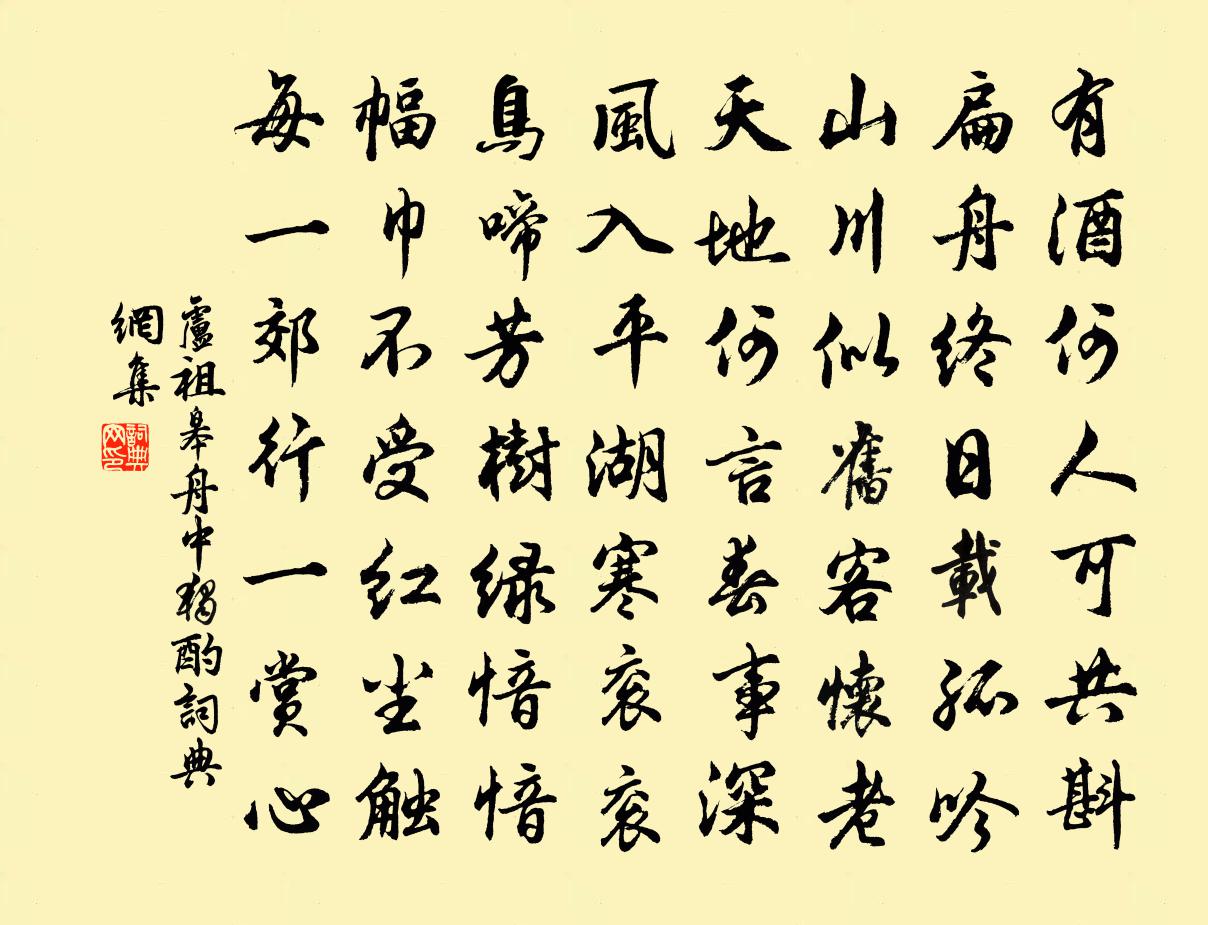 有酒何人可共斟
扁舟终日載孤吟
山川似舊客懷老
天地何言春事深
風入平湖寒衮衮
鳥啼芳樹緑愔愔
幅巾不受红尘触
每一郊行一赏心
盧祖皋舟中獨酌詞典
網集
詞典
网印